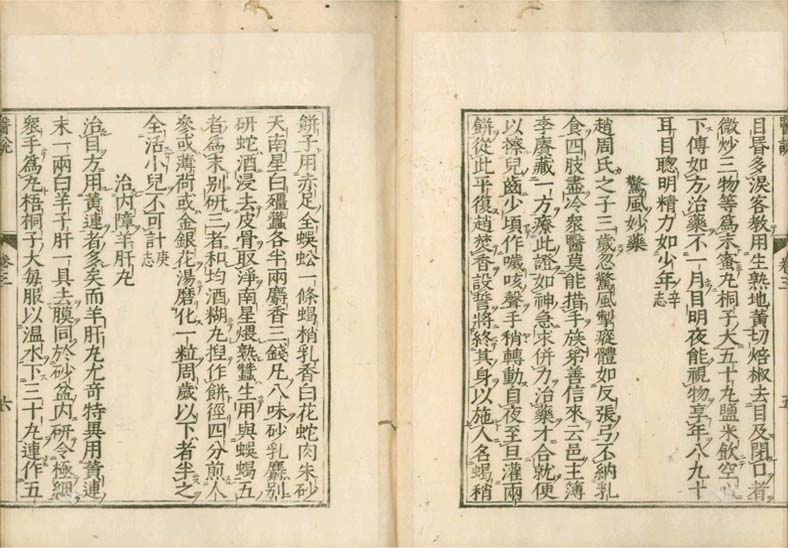 醫說 卷三 五
目昏多淚客教用生熟地黃切焙椒去目及閉口者
微炒三物等爲末蜜丸桐子大五十丸鹽米飲空心
下傳如方治藥不一月目明夜能視物享年八九十
耳目聰明精力如少年辛志
驚風妙藥
趙周氏之子三歲忽驚風掣瘲體如反張弓不納乳
食四肢盡冷衆醫莫能措手族弟善信來云邑主簿
李賡藏一方療此證如神急求併力治藥才合就便
以擦兒齒少頃作嚏咳聲手稍轉動自夜至旦灌兩
餅從此平復趙焚香設誓將終其身以施人名蝎稍
餅子用赤足全蜈蚣一條蝎梢乳香白花蛇肉朱砂
天南星白殭蠶各半兩麝香三錢凡八味砂乳麝別
研蛇酒浸去皮骨取淨南星煨熟蠶生用與蜈蝎五
者爲末別研三者和均酒糊丸捏作餅徑四分煎人
參或薄荷或金銀花湯磨化一粒周歲以下者半之
全活小兒不可計庚志
治内障羊肝丸
治目方用黃連者多矣而羊肝丸尤奇特異用黃連
末一兩白羊子肝一具去膜同於砂盆内研令極細
衆手爲丸梧桐子大每服以温水下三十丸連作五
醫說 卷三 六